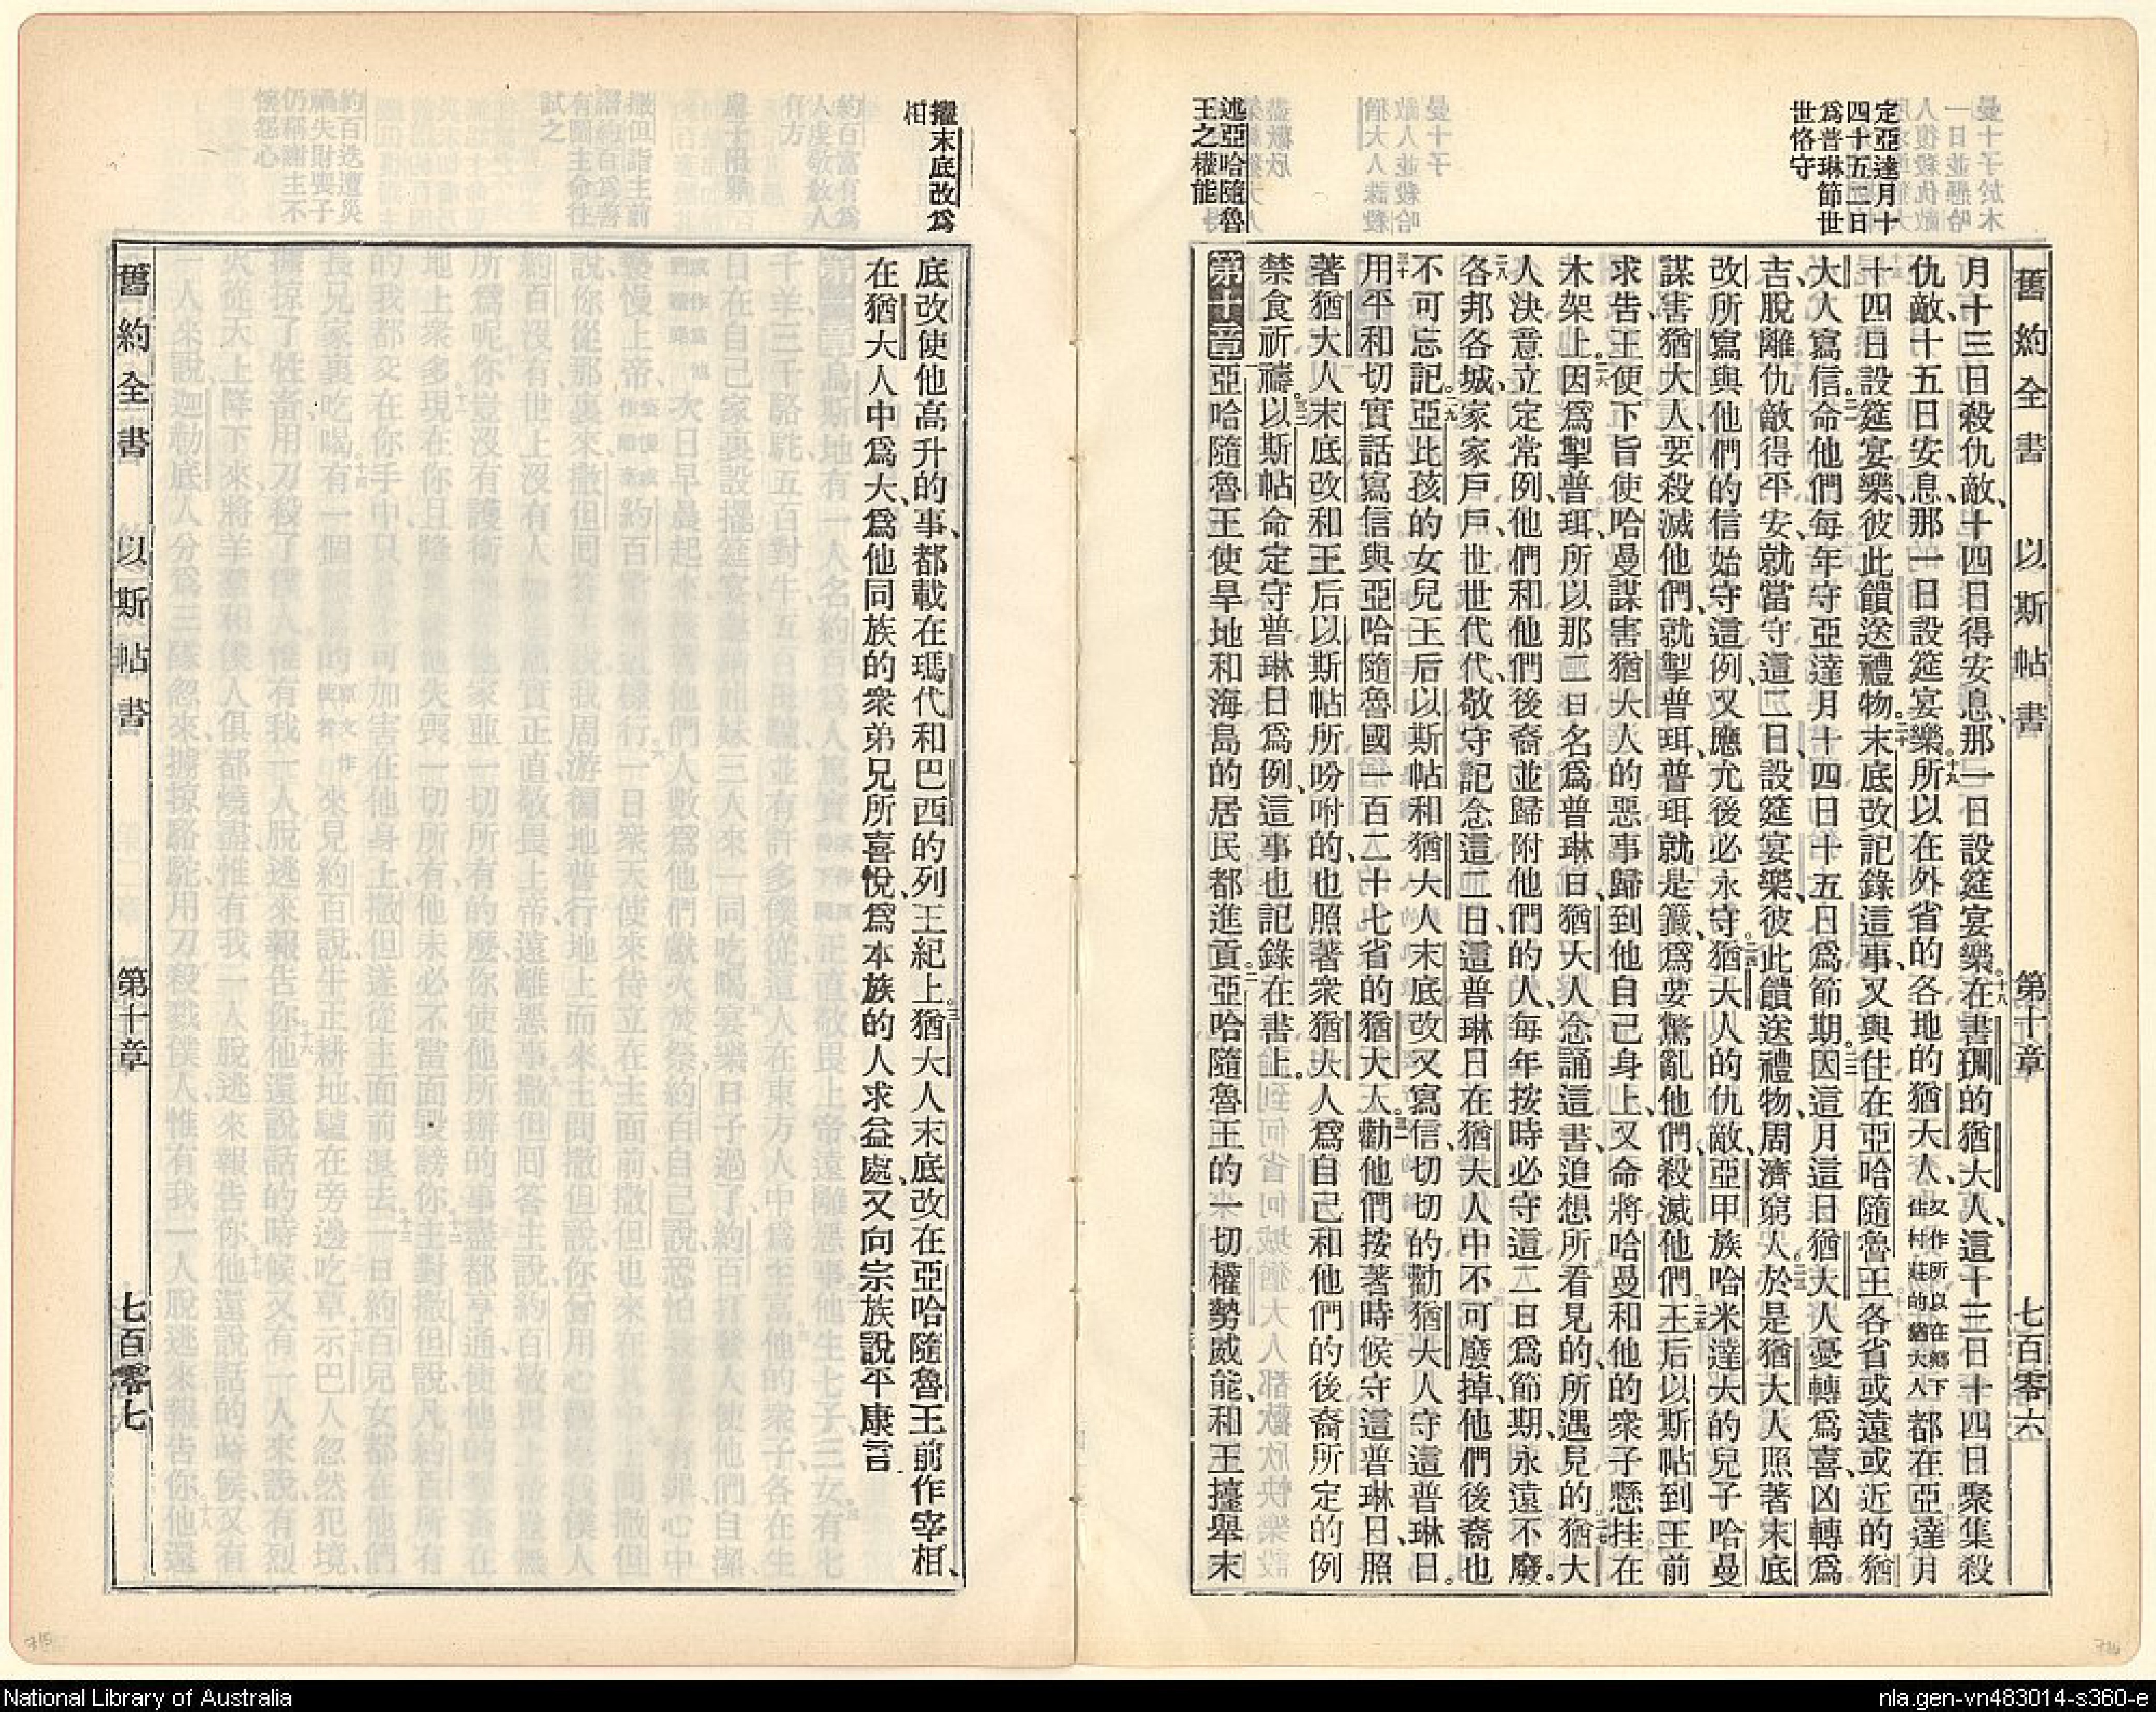 舊約全書　以斯帖書　第十章　七百零六
定亞達月十
四十五二日
爲普琳節世
世恪守
述亞哈隨魯
王之權能
月十三日殺仇敵、十四日得安息、那一日設筵宴樂。十八在書珊的猶大人、這十三日十四日聚集殺
仇敵、十五日安息、那一日設筵宴樂。十九所以在外省的各地的猶大人、又作所以在鄉下住村莊的猶大人都在亞達月
十四日設筵宴樂、彼此饋送禮物。二十末底改記錄這事、又與住在亞哈隨魯王各省或遠或近的猶
大人寫信、命他們每年守亞達月十四日十五日爲節期。因這月這日猶大人憂轉爲喜、凶轉爲
吉、脫離仇敵得平安、就當守這二日、設筵宴樂、彼此饋送禮物、周濟窮人。於是猶大人照著末底
改所寫與他們的信始守這例、又應允後必永守。二四猶大人的仇敵、亞甲族哈米達大的兒子哈曼
謀害猶大人、要殺滅他們、就掣普珥、普珥就是籤、爲要驚亂他們、殺滅他們。二五王后以斯帖到王前
求告、王便下旨使哈曼謀害猶大人的惡事歸到他自己身上、又命將哈曼和他的衆子懸挂在
木架上。二六因爲掣普珥所以那二日名爲普琳日、猶大人念誦這書、追想所看見的、所遇見的。二七猶大
人決意立定常例、他們和他們後裔並歸附他們的人、每年按時必守這二日爲節期、永遠不廢。
二八各邦各城、家家戶戶、世世代代、敬守記念這二日、這普琳日在猶大人中不可廢掉、他們後裔也
不可忘記。二九亞比孩的女兒王后以斯帖和猶大人末底改又寫信、切切的勸猶大人守這普琳日。
三十用平和切實話寫信與亞哈隨魯國一百二十七省的猶大人、三一勸他們按著時候守這普琳日、照
著猶大人末底改和王后以斯帖所吩咐的、也照著衆猶大人爲自己和他們的後裔所定的例
禁食祈禱。三二以斯帖命定守普琳日爲例、這事也記錄在書上。
第十章一亞哈隨魯王使旱地和海島的居民都進貢。二亞哈隨魯王的一切權勢威能、和王擡舉末
擢末底改爲
相
底改使他高升的事、都載在瑪代和巴西的列王紀上。三猶大人末底改在亞哈隨魯王前作宰相、
在猶大人中爲大、爲他同族的衆弟兄所喜悅、爲本族的人求益處、又向宗族說平康言
舊約全書　以斯帖書　第十章　七百零七
715
714
National Library of Australia
nla.gen-vn483014-s360-e